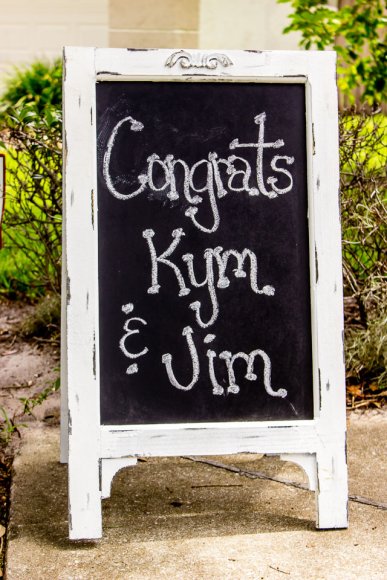 Congrats
Kym
& Jim